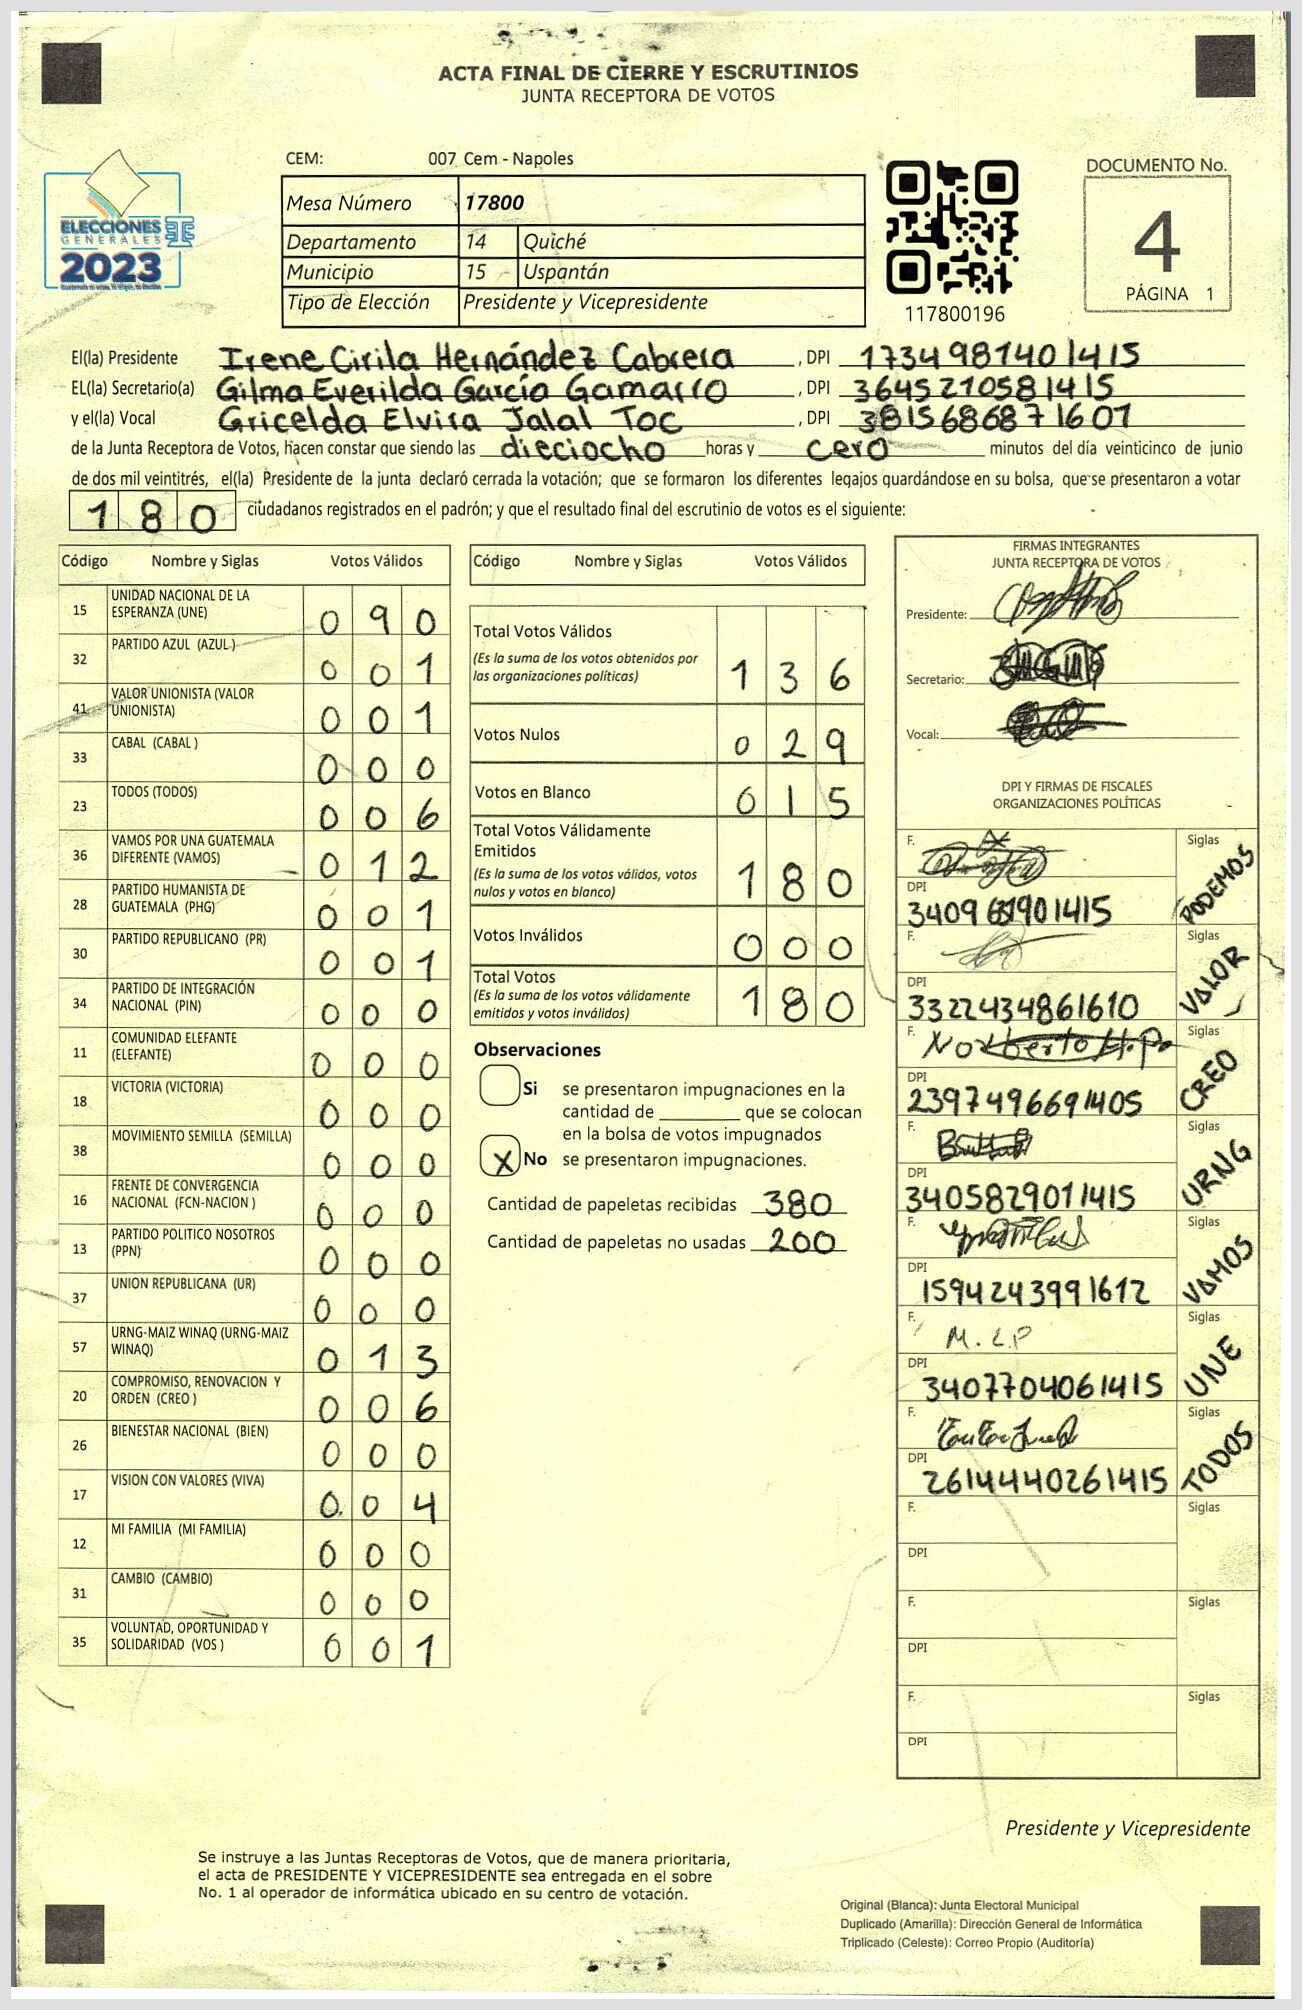 ACTA FINAL DE CIERRE Y ESCRUTINIOS
JUNTA RECEPTORA DE VOTOS
CEM: 007 Cem - Napoles
ELECCIONES
GENERALES
2023
Mesa Número 17800
Departamento 14 Quiché
Municipio 15 Uspantán
Tipo de Elección Presidente y Vicepresidente
117800196
DOCUMENTO No.
4
PÁGINA 1
El(la) Presidente Irene Cirila Hernández Cabrera , DPI 1734981401415
EL(la) Secretario(a) Gilma Everilda García Gamarro , DPI 3645210581415
y el(la) Vocal Gricelda Elvira Jalal Toc , DPI 3815686871601
de la Junta Receptora de Votos, hacen constar que siendo las dieciocho horas y cero minutos del día veinticinco de junio
de dos mil veintitrés, el(la) Presidente de la junta declaró cerrada la votación; que se formaron los diferentes legajos guardándose en su bolsa, que se presentaron a votar
180 ciudadanos registrados en el padrón; y que el resultado final del escrutinio de votos es el siguiente:
Código Nombre y Siglas Votos Válidos
15 UNIDAD NACIONAL DE LA
ESPERANZA (UNE) 090
32 PARTIDO AZUL (AZUL ) 001
41 VALOR UNIONISTA (VALOR
UNIONISTA) 001
33 CABAL (CABAL ) 000
23 TODOS (TODOS) 006
36 VAMOS POR UNA GUATEMALA
DIFERENTE (VAMOS) 012
28 PARTIDO HUMANISTA DE
GUATEMALA (PHG) 001
30 PARTIDO REPUBLICANO (PR) 001
34 PARTIDO DE INTEGRACIÓN
NACIONAL (PIN) 000
11 COMUNIDAD ELEFANTE
(ELEFANTE) 000
18 VICTORIA (VICTORIA) 000
38 MOVIMIENTO SEMILLA (SEMILLA) 000
16 FRENTE DE CONVERGENCIA
NACIONAL (FCN-NACION ) 000
13 PARTIDO POLITICO NOSOTROS
(PPN) 000
37 UNION REPUBLICANA (UR) 000
57 URNG-MAIZ WINAQ (URNG-MAIZ
WINAQ) 013
20 COMPROMISO, RENOVACION Y
ORDEN (CREO ) 006
26 BIENESTAR NACIONAL (BIEN) 000
17 VISION CON VALORES (VIVA) 004
12 MI FAMILIA (MI FAMILIA) 000
31 CAMBIO (CAMBIO) 000
35 VOLUNTAD, OPORTUNIDAD Y
SOLIDARIDAD (VOS ) 001
Código Nombre y Siglas Votos Válidos
Total Votos Válidos
(Es la suma de los votos obtenidos por
las organizaciones políticas) 136
Votos Nulos 029
Votos en Blanco 015
Total Votos Válidamente
Emitidos
(Es la suma de los votos válidos, votos
nulos y votos en blanco) 180
Votos Inválidos 000
Total Votos
(Es la suma de los votos válidamente
emitidos y votos inválidos) 180
Observaciones
Si se presentaron impugnaciones en la
cantidad de que se colocan
en la bolsa de votos impugnados
X No se presentaron impugnaciones.
Cantidad de papeletas recibidas 380
Cantidad de papeletas no usadas 200
FIRMAS INTEGRANTES
JUNTA RECEPTORA DE VOTOS
Presidente:
Secretario:
Vocal:
DPI Y FIRMAS DE FISCALES
ORGANIZACIONES POLÍTICAS
F. Siglas
DPI PODEMOS
F. Siglas
DPI VALOR
3322434861610
F. Norberto Siglas
DPI CREO
2397496691405
F. Siglas
DPI URNG
3405829011415
F. Siglas
DPI VAMOS
1594243991612
F. M. L.P Siglas
DPI UNE
3407704061415
F. Siglas
DPI TODOS
2614440261415
F. Siglas
DPI
F. Siglas
DPI
F. Siglas
DPI
Presidente y Vicepresidente
Se instruye a las Juntas Receptoras de Votos, que de manera prioritaria,
el acta de PRESIDENTE Y VICEPRESIDENTE sea entregada en el sobre
No. 1 al operador de informática ubicado en su centro de votación.
Original (Blanca): Junta Electoral Municipal
Duplicado (Amarilla): Dirección General de Informática
Triplicado (Celeste): Correo Propio (Auditoría)